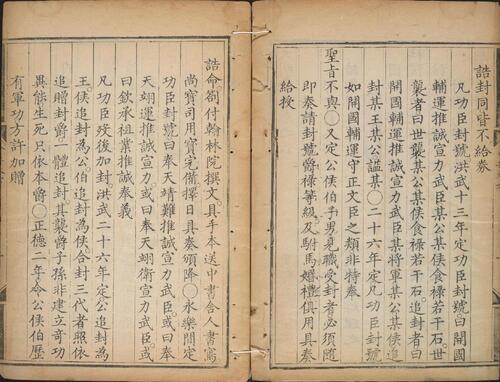 誥封同皆不給券
凡功臣封號洪武十三年定功臣封號曰開國
輔運推誠宣力武臣某公某侯食祿若干石世
襲者曰世襲某公某侯食祿若干石追封者曰
開國輔運推誠宣力武臣某將軍某公某侯追
封某王某公謚某○二十六年定凡功臣封號
如開國輔運守正文臣之類非特奉
聖旨不與○又定公侯伯子男見職受封者必須隨
即奏請封號爵祿等級及駙馬婚禮俱用具奏
給授
誥命劄付翰林院撰文具手本送中書舍人書寫
尚寶司用寶完備擇日具奏頒降○永樂間定
功臣封號曰奉天靖難推誠宣力武臣或曰奉
天翊運推誠宣力或曰奉天翊衛宣力武臣或
曰欽承祖業推誠奉義
凡功臣歿後加封洪武二十六年定公追封為
王侯追封為公伯追封為侯合封三代者照依
追贈封爵一體追封其襲爵子孫非建立奇功
異能生死只依本爵○正德二年令公侯伯歷
有軍功方許加贈